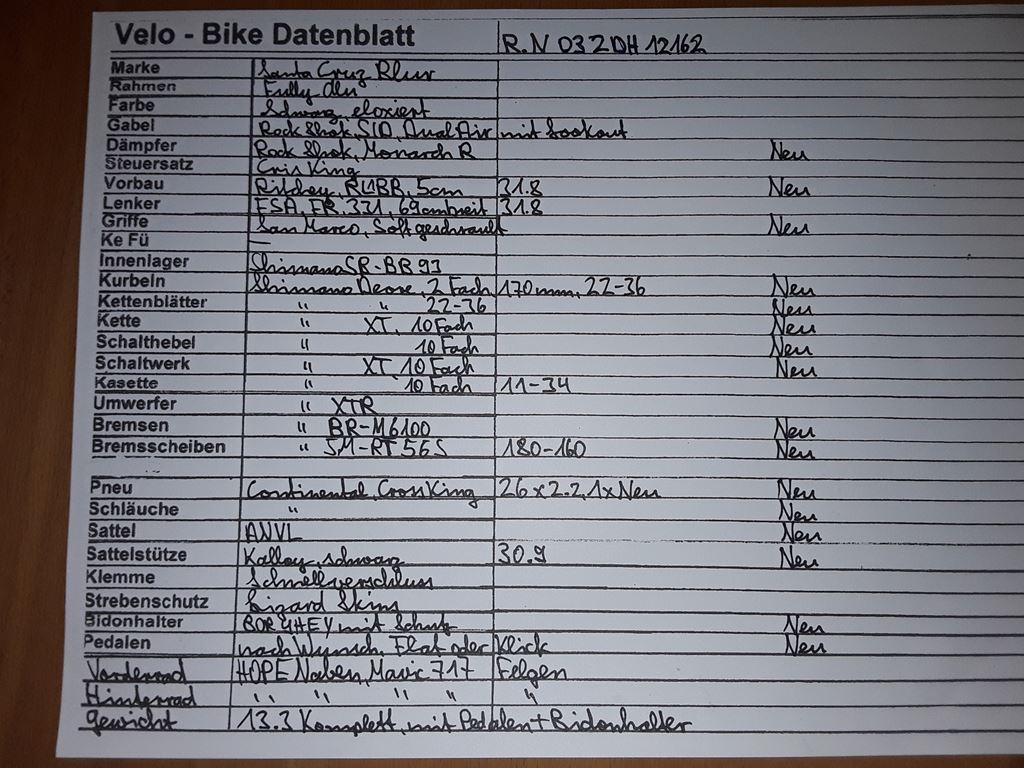 Velo - Bike Datenblatt R.N 03 2DH 12162
Marke Santa Cruz Blur
Rahmen Fully Alu
Farbe Schwarz eloxiert
Gabel Rock Shok, SID, Dual Air mit Lookout
Dämpfer Rock Shok, Monarch R Neu
Steuersatz Cris King
Vorbau Ritchey, 5cm 31.8 Neu
Lenker FSA, FR, 331, 69cm breit 31.8
Griffe San Marco, Soft geschraubt Neu
Ke Fü —
Innenlager Shimano SR-BR 93
Kurbeln Shimano Deore, 2 Fach 170mm, 22-36 Neu
Kettenblätter " " 22-36 Neu
Kette " XT, 10 Fach Neu
Schalthebel " 10 Fach Neu
Schaltwerk " XT, 10 Fach Neu
Kasette " 10 Fach 11-34
Umwerfer " XTR
Bremsen " BR-M6100 Neu
Bremsscheiben " SM-RT 56S 180-160 Neu
Pneu Continental, CrossKing 26 x 2.2, 1x Neu Neu
Schläuche " Neu
Sattel ANVL Neu
Sattelstütze Kalloy, schwarz 30.9 Neu
Klemme Schnellverschluss
Strebenschutz Lizard Skins
Bidonhalter mit Schutz Neu
Pedalen nach Wunsch, Flat oder Klick Neu
Vorderrad HOPE Naben, Mavic 717 Felgen
Hinterrad " " " " "
Gewicht 13.3 Komplett, mit Pedalen + Bidonhalter